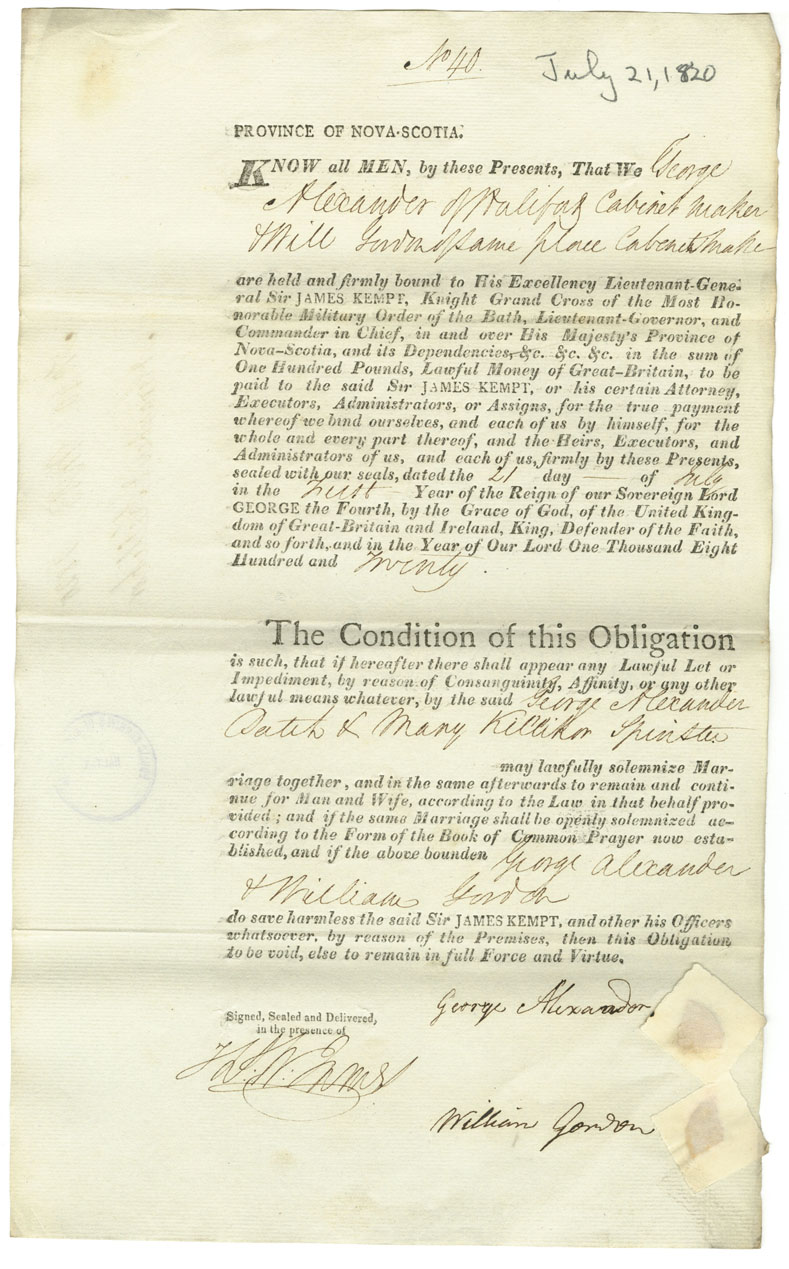 No 40.
July 21, 1820
PROVINCE OF NOVA-SCOTIA.
KNOW all MEN, by these Presents, That We George
Alexander of Halifax Cabinet maker
& Will Gordon of same place Cabinet make
are held and firmly bound to His Excellency Lieutenant-Gene-
ral Sir JAMES KEMPT, Knight Grand Cross of the Most Ho-
norable Military Order of the Bath, Lieutenant-Governor, and
Commander in Chief, in and over His Majesty's Province of
Nova-Scotia, and its Dependencies, &c. &c. &c. in the sum of
One Hundred Pounds, Lawful Money of Great-Britain, to be
paid to the said Sir JAMES KEMPT, or his certain Attorney,
Executors, Administrators, or Assigns, for the true payment
whereof we bind ourselves, and each of us by himself, for the
whole and every part thereof, and the Heirs, Executors, and
Administrators of us, and each of us, firmly by these Presents,
sealed with our seals, dated the 21 day — of July
in the First Year of the Reign of our Sovereign Lord
GEORGE the Fourth, by the Grace of God, of the United King-
dom of Great-Britain and Ireland, King, Defender of the Faith,
and so forth, and in the Year of Our Lord One Thousand Eight
Hundred and Twenty.
The Condition of this Obligation
is such, that if hereafter there shall appear any Lawful Let or
Impediment, by reason of Consanguinity, Affinity, or any other
lawful means whatever, by the said George Alexander
& Mary Spinster
may lawfully solemnize Mar-
riage together, and in the same afterwards to remain and conti-
nue for Man and Wife, according to the Law in that behalf pro-
vided; and if the same Marriage shall be openly solemnized ac-
cording to the Form of the Book of Common Prayer now esta-
blished, and if the above bounden George Alexander
& William Gordon
do save harmless the said Sir JAMES KEMPT, and other his Officers
whatsoever, by reason of the Premises, then this Obligation
to be void, else to remain in full Force and Virtue.
George Alexander
Signed, Sealed and Delivered,
in the presence of
William Gordon